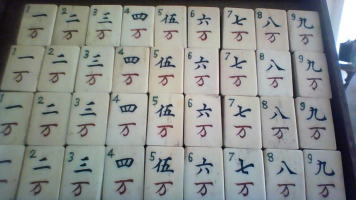 1 2 3 4 5 6 7 8 9
一 二 三 四 伍 六 七 八 九
万 万 万 万 万 万 万 万 万
1 2 3 4 5 6 7 8 9
一 二 三 四 伍 六 七 八 九
万 万 万 万 万 万 万 万 万
1 2 3 4 5 6 7 8 9
一 二 三 四 伍 六 七 八 九
万 万 万 万 万 万 万 万 万
2 3 4 5 6 7 8 9
一 二 三 四 伍 六 七 八 九
万 万 万 万 万 万 万 万 万